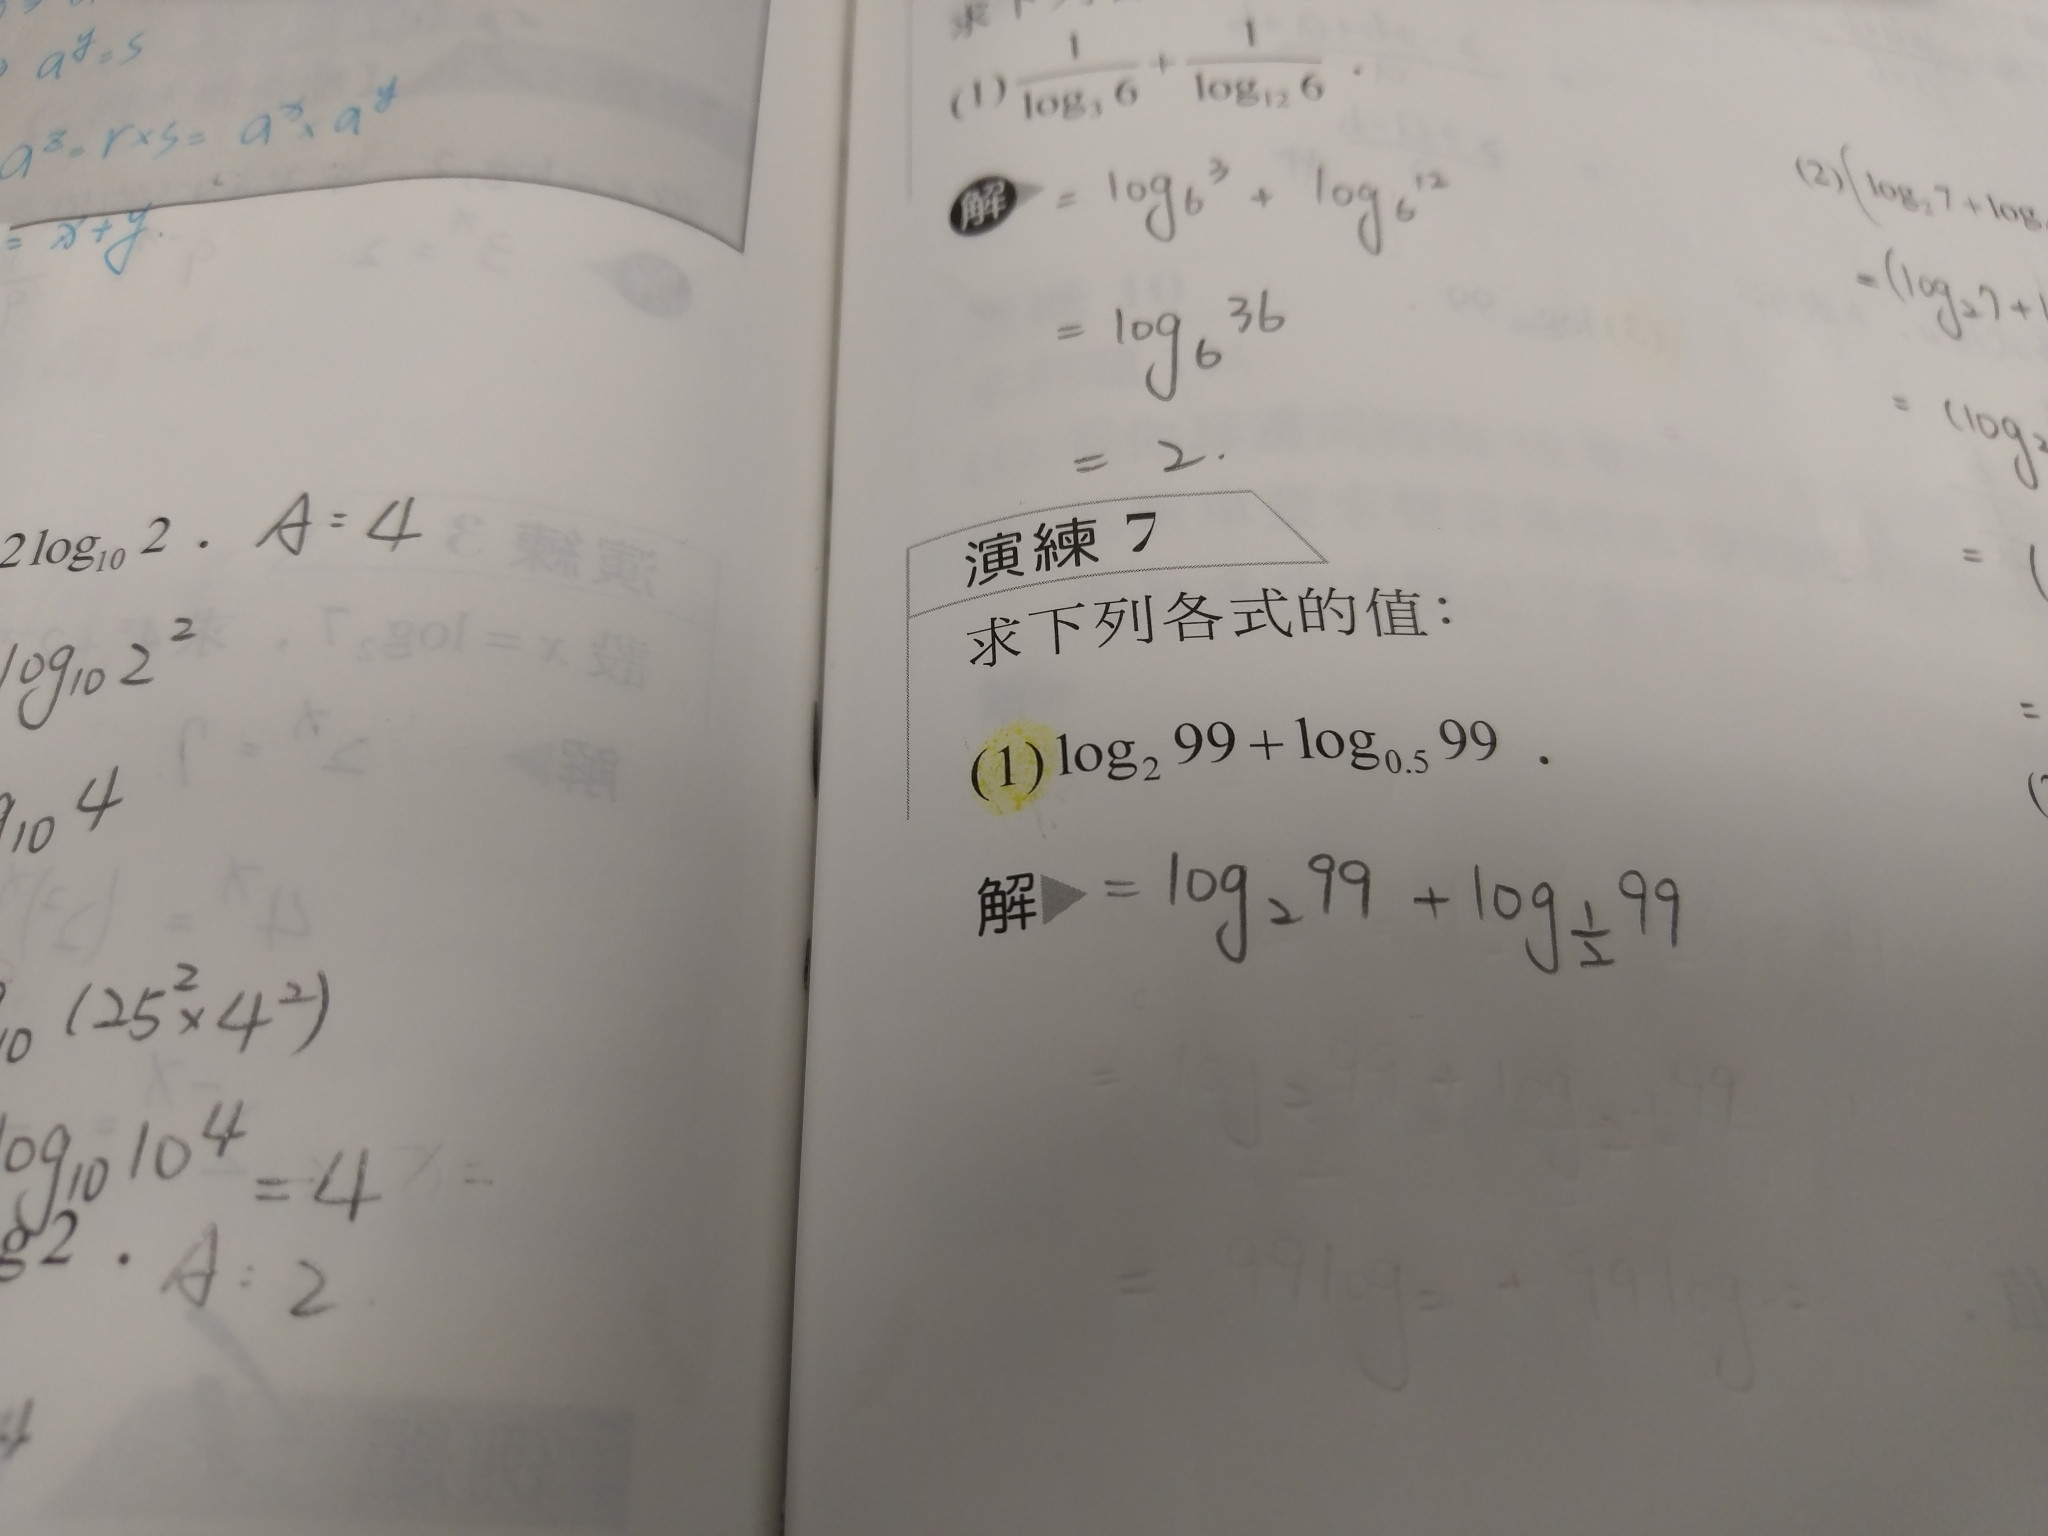 a^y=s
a^z=r×s=a^x×a^y
=x+y.
2log₁₀2. A=4
log₁₀2²
₁₀4
₁₀(25²×4²)
log₁₀10⁴=4
g2. A=2
4
求下列
(1) 1/log₃6 + 1/log₁₂6.
解 = log₆3 + log₆12
= log₆36
= 2.
演練 7
求下列各式的值:
(1) log₂99+log₀.₅99.
解 = log₂99 + log_{1/2}99
(2)(log₂7+log
=(log₂7+1
=(log₂
=(
=